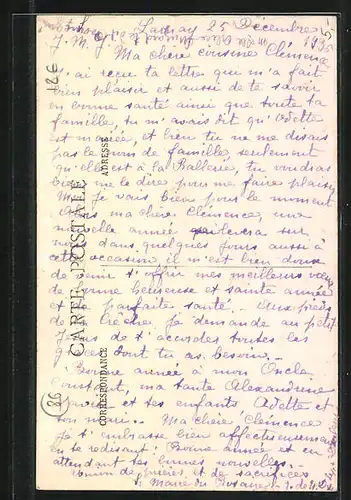 Launay 25 Décembre
J. M. J. 1935
Ma chère cousine Clémence
J'ai reçu ta lettre qui m'a fait
bien plaisir et aussi de te savoir
en bonne santé ainsi que toute ta
famille, tu m'avais dit qu'Odette
est mariée, et bien tu ne me disais
pas le nom de famille, seulement
qu'elle est à la Ballerie, tu voudras
bien me le dire pour me faire plaisir
Moi je vais bien pour le moment
ma chère Clémence, une
nouvelle année sur
nous dans quelques jours aussi à
cette occasion il m'est bien doux
de venir t'offrir mes meilleurs vœux
de bonne heureuse et sainte année
et de parfaite santé. Aux pieds
de la Crèche, je demande au petit
Jésus de t'accorder toutes les
grâces dont tu as besoin.
Bonne année à mon Oncle
Constant, ma tante Alexandrine
et tes enfants Odette et
son mari. Ma chère Clémence
je t'embrasse bien affectueusement
en te redisant Bonne année et en
attendant tes bonnes nouvelles.
Union de prières et de sacrifices
Sr Marie du Rosaire
CARTE POSTALE
CORRESPONDANCE
ADRESSE
86